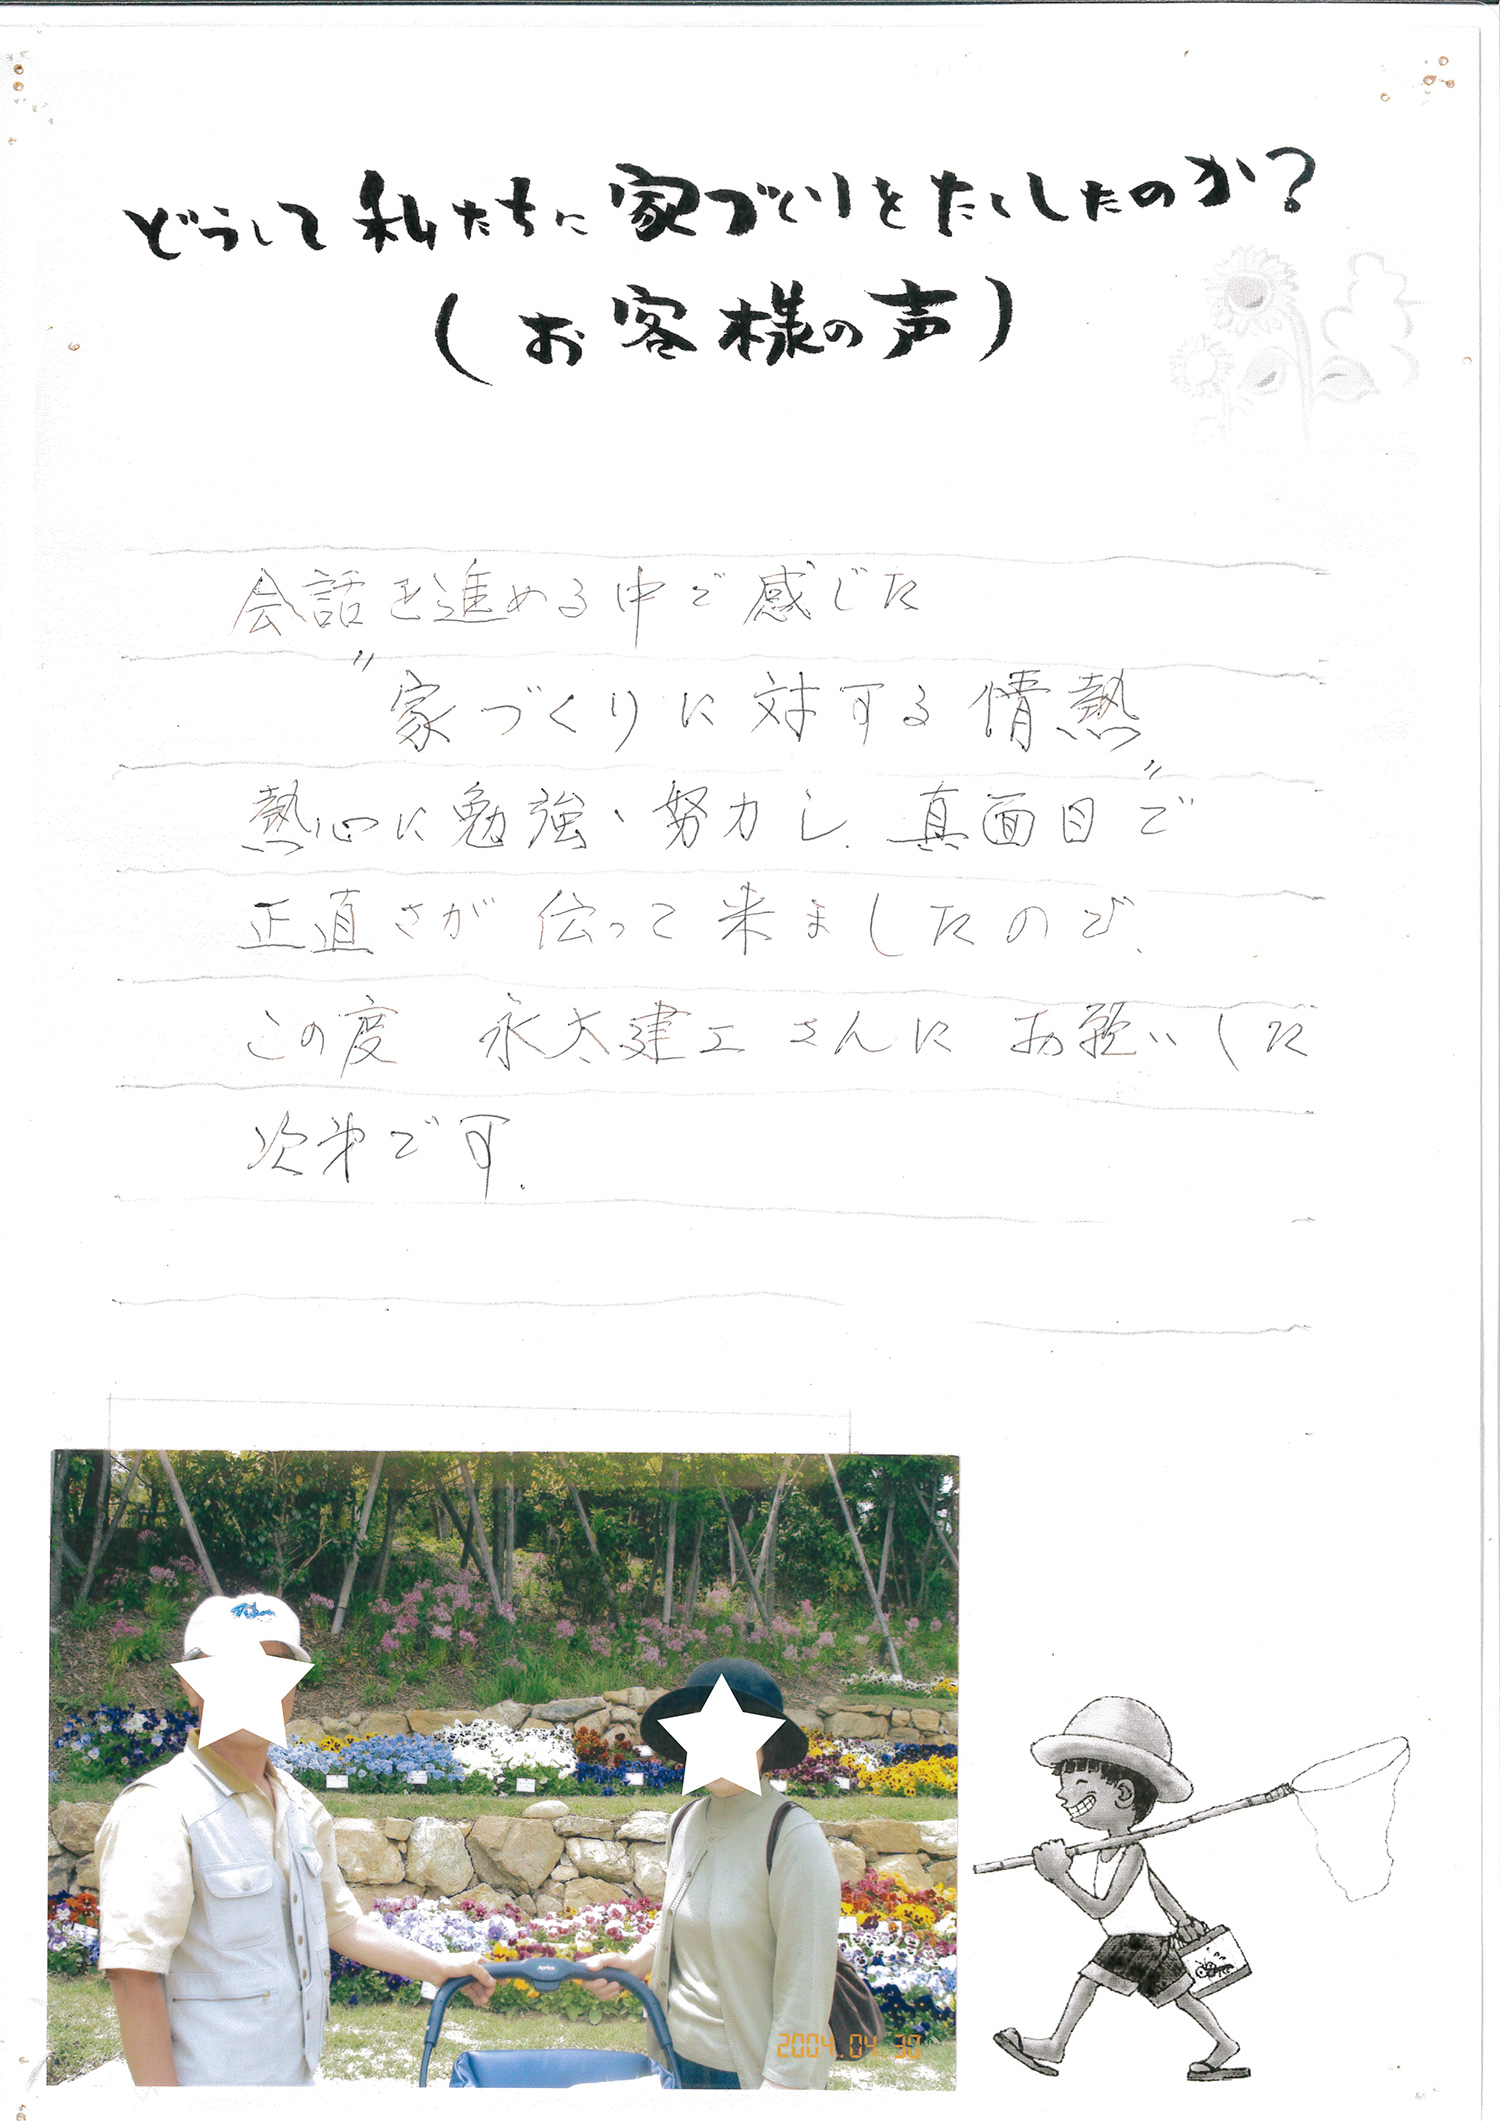 どうして私たちに家づくりをたくしたのか？
（お客様の声）
会話を進める中で感じた
〝家づくりに対する情熱〟
熱心に勉強・努力し、真面目で
正直さが伝って来ましたので、
この度 永太建工さんにお願いした
次第です。
Aprica
2004.04.30